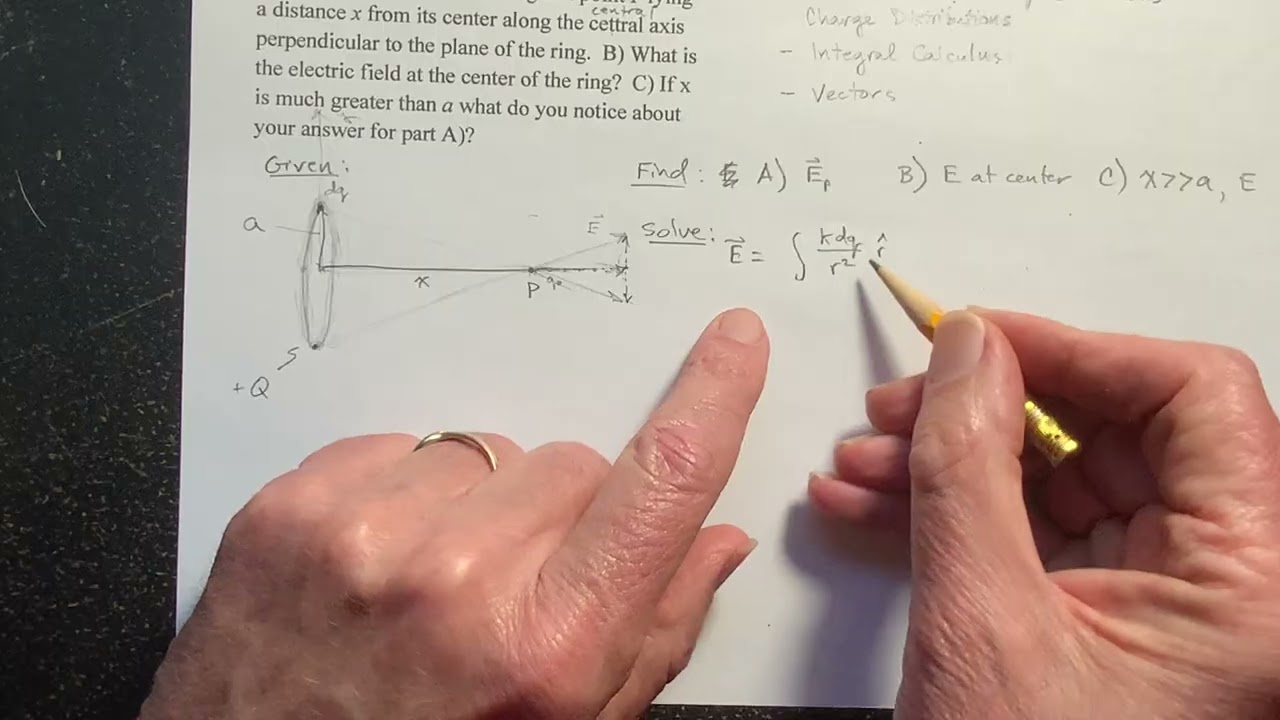 lying
a distance x from its center along the cettral axis
central
perpendicular to the plane of the ring. B) What is
the electric field at the center of the ring? C) If x
is much greater than a what do you notice about
your answer for part A)?
Charge Distributions
- Integral Calculus
- Vectors
Given:
Find: A) E⃗p B) E at center C) x>>a, E
dq
a
x
P
E⃗
+Q
Solve: E⃗ = ∫ kdq/r² r̂